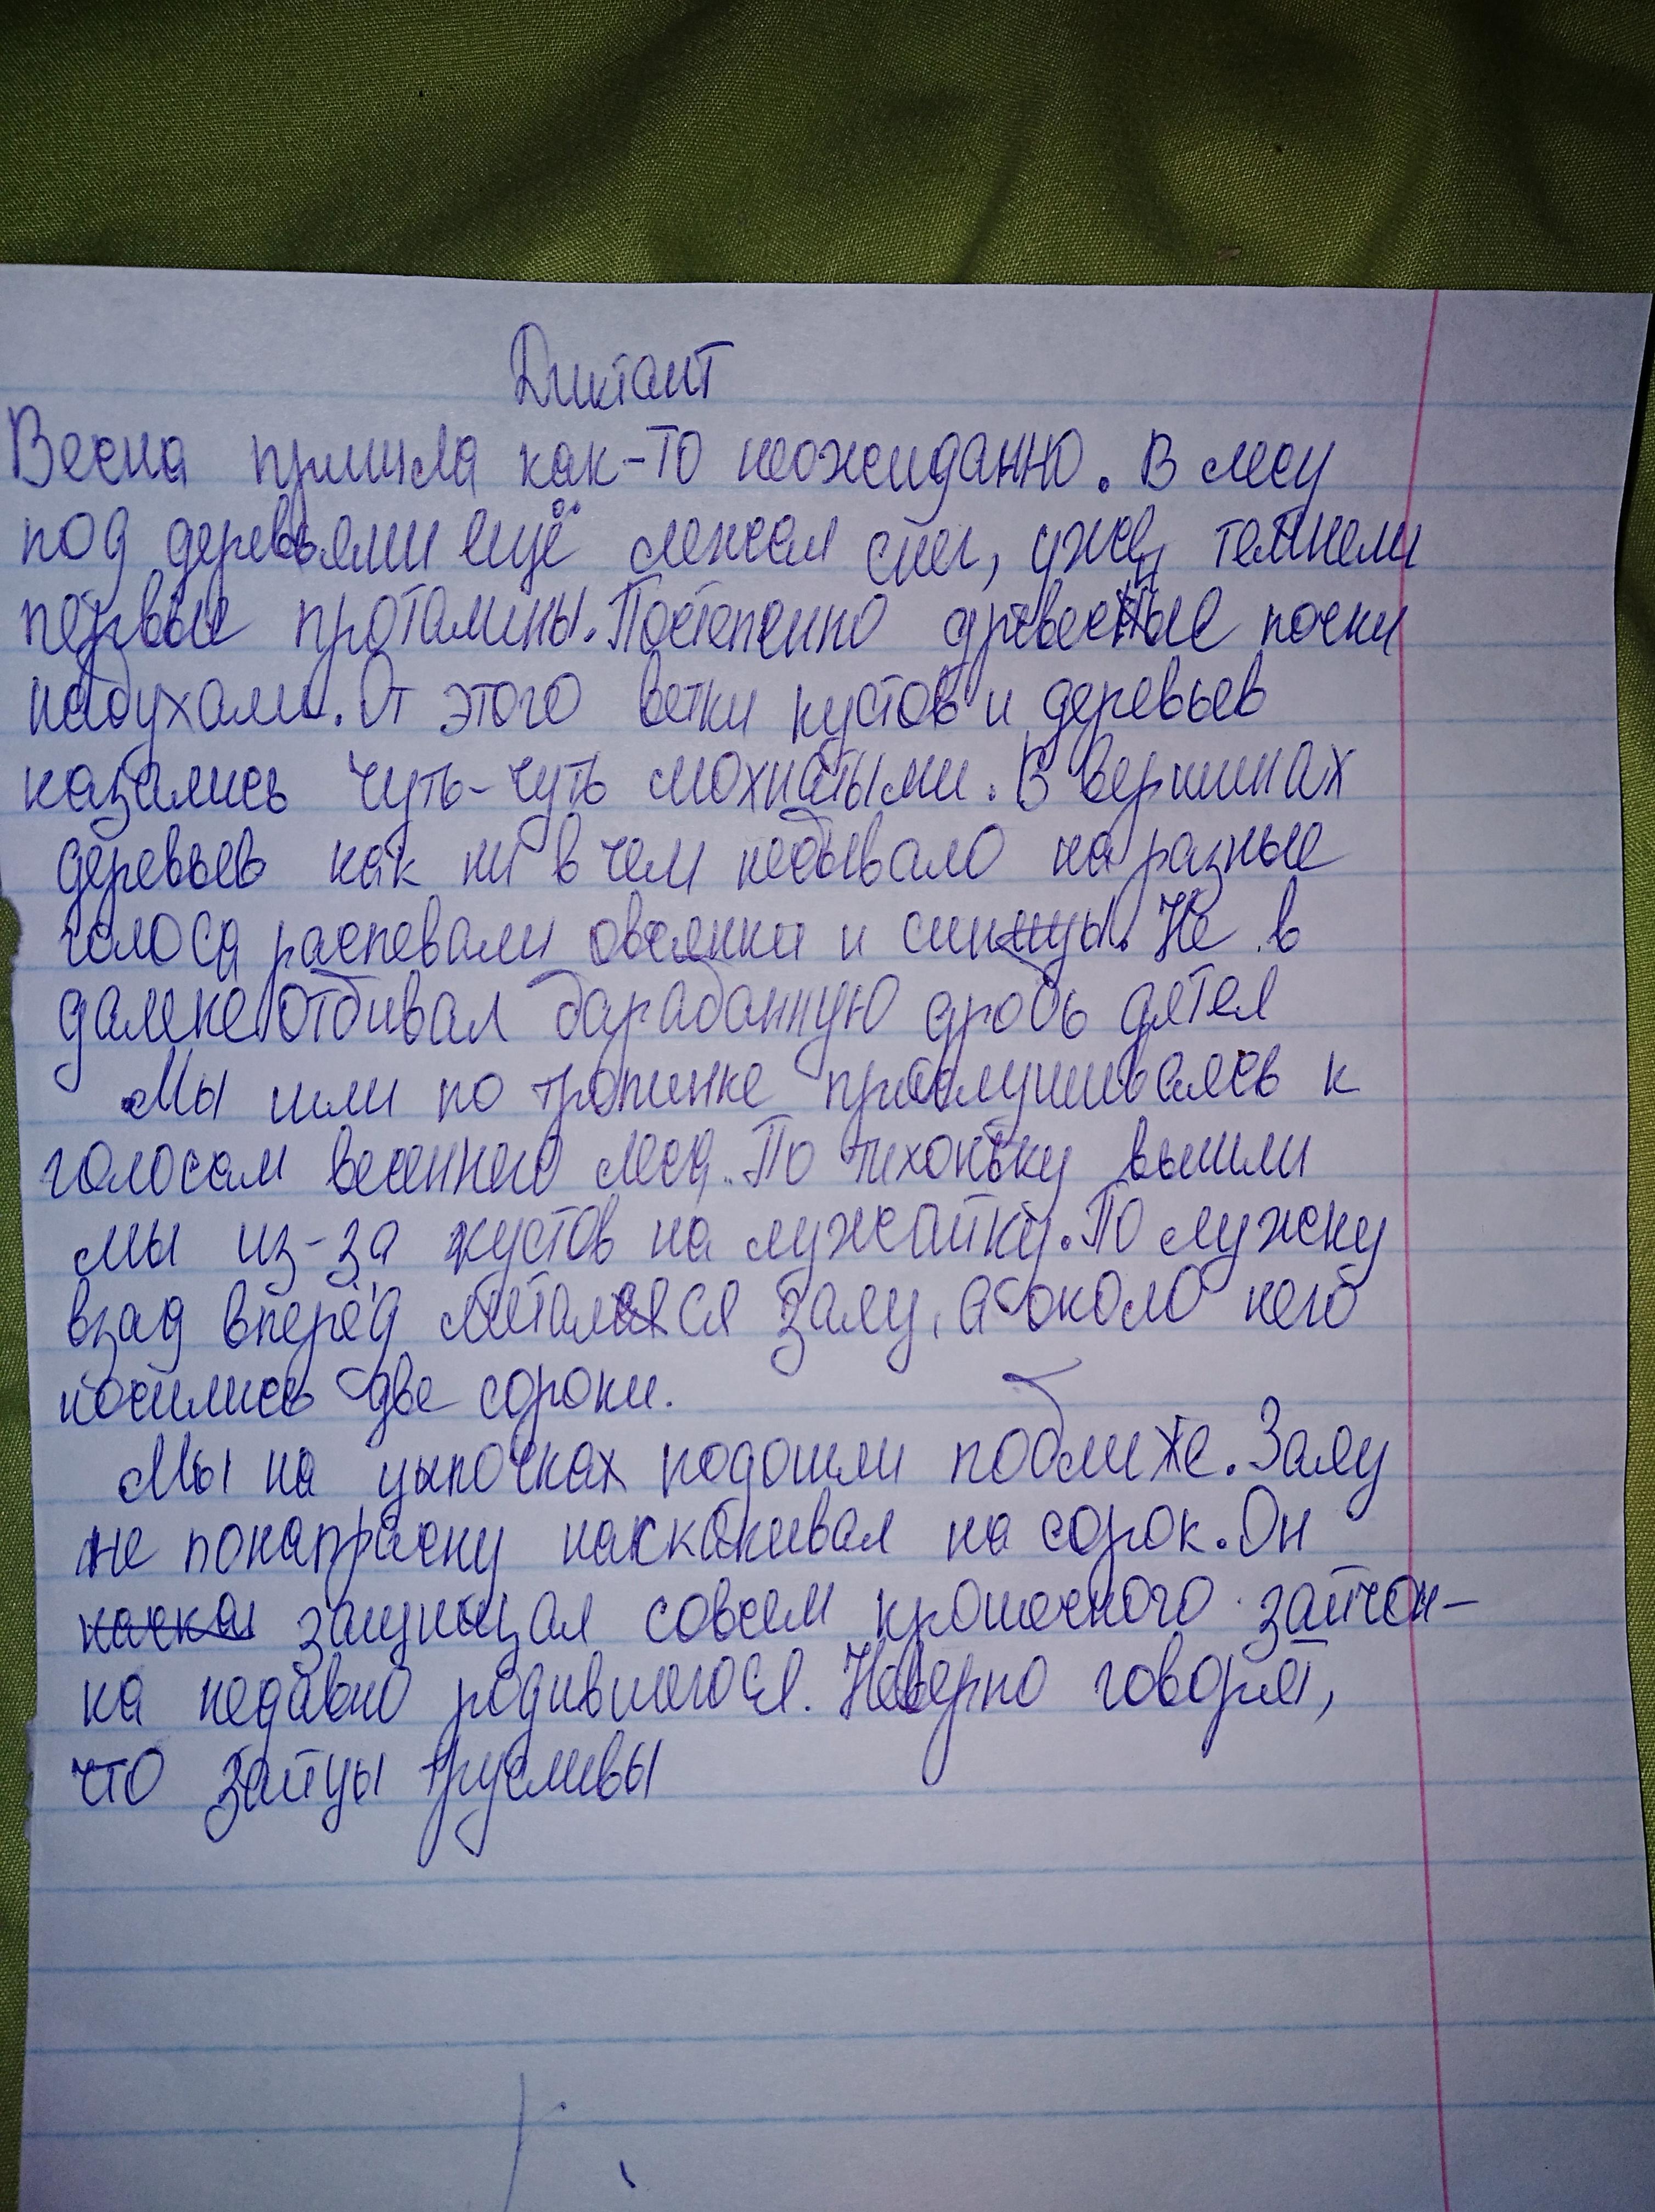 Диктант
Весна пришла как-то неожиданно. В лесу
под деревьями ещё лежал снег, уже темнели
первые проталины. Постепенно древесные почки
набухали. От этого ветки кустов и деревьев
казались чуть-чуть мохнатыми. В вершинах
деревьев как ни в чем небывало на разные
голоса распевали овсянки и синицы. Не в
далеке отбивал барабанную дробь дятел
Мы шли по тропинке прислушиваясь к
голосам весеннего леса. По тихоньку вышли
мы из-за кустов на лужайку. По лужку
взад вперёд метался заяц, а около него
носились две сороки.
Мы на цыпочках подошли поближе. Заяц
не понапрасну наскакивал на сорок. Он
защищал совсем крошечного зайчон-
ка недавно родившегося. Неверно говорят,
что зайцы трусливы